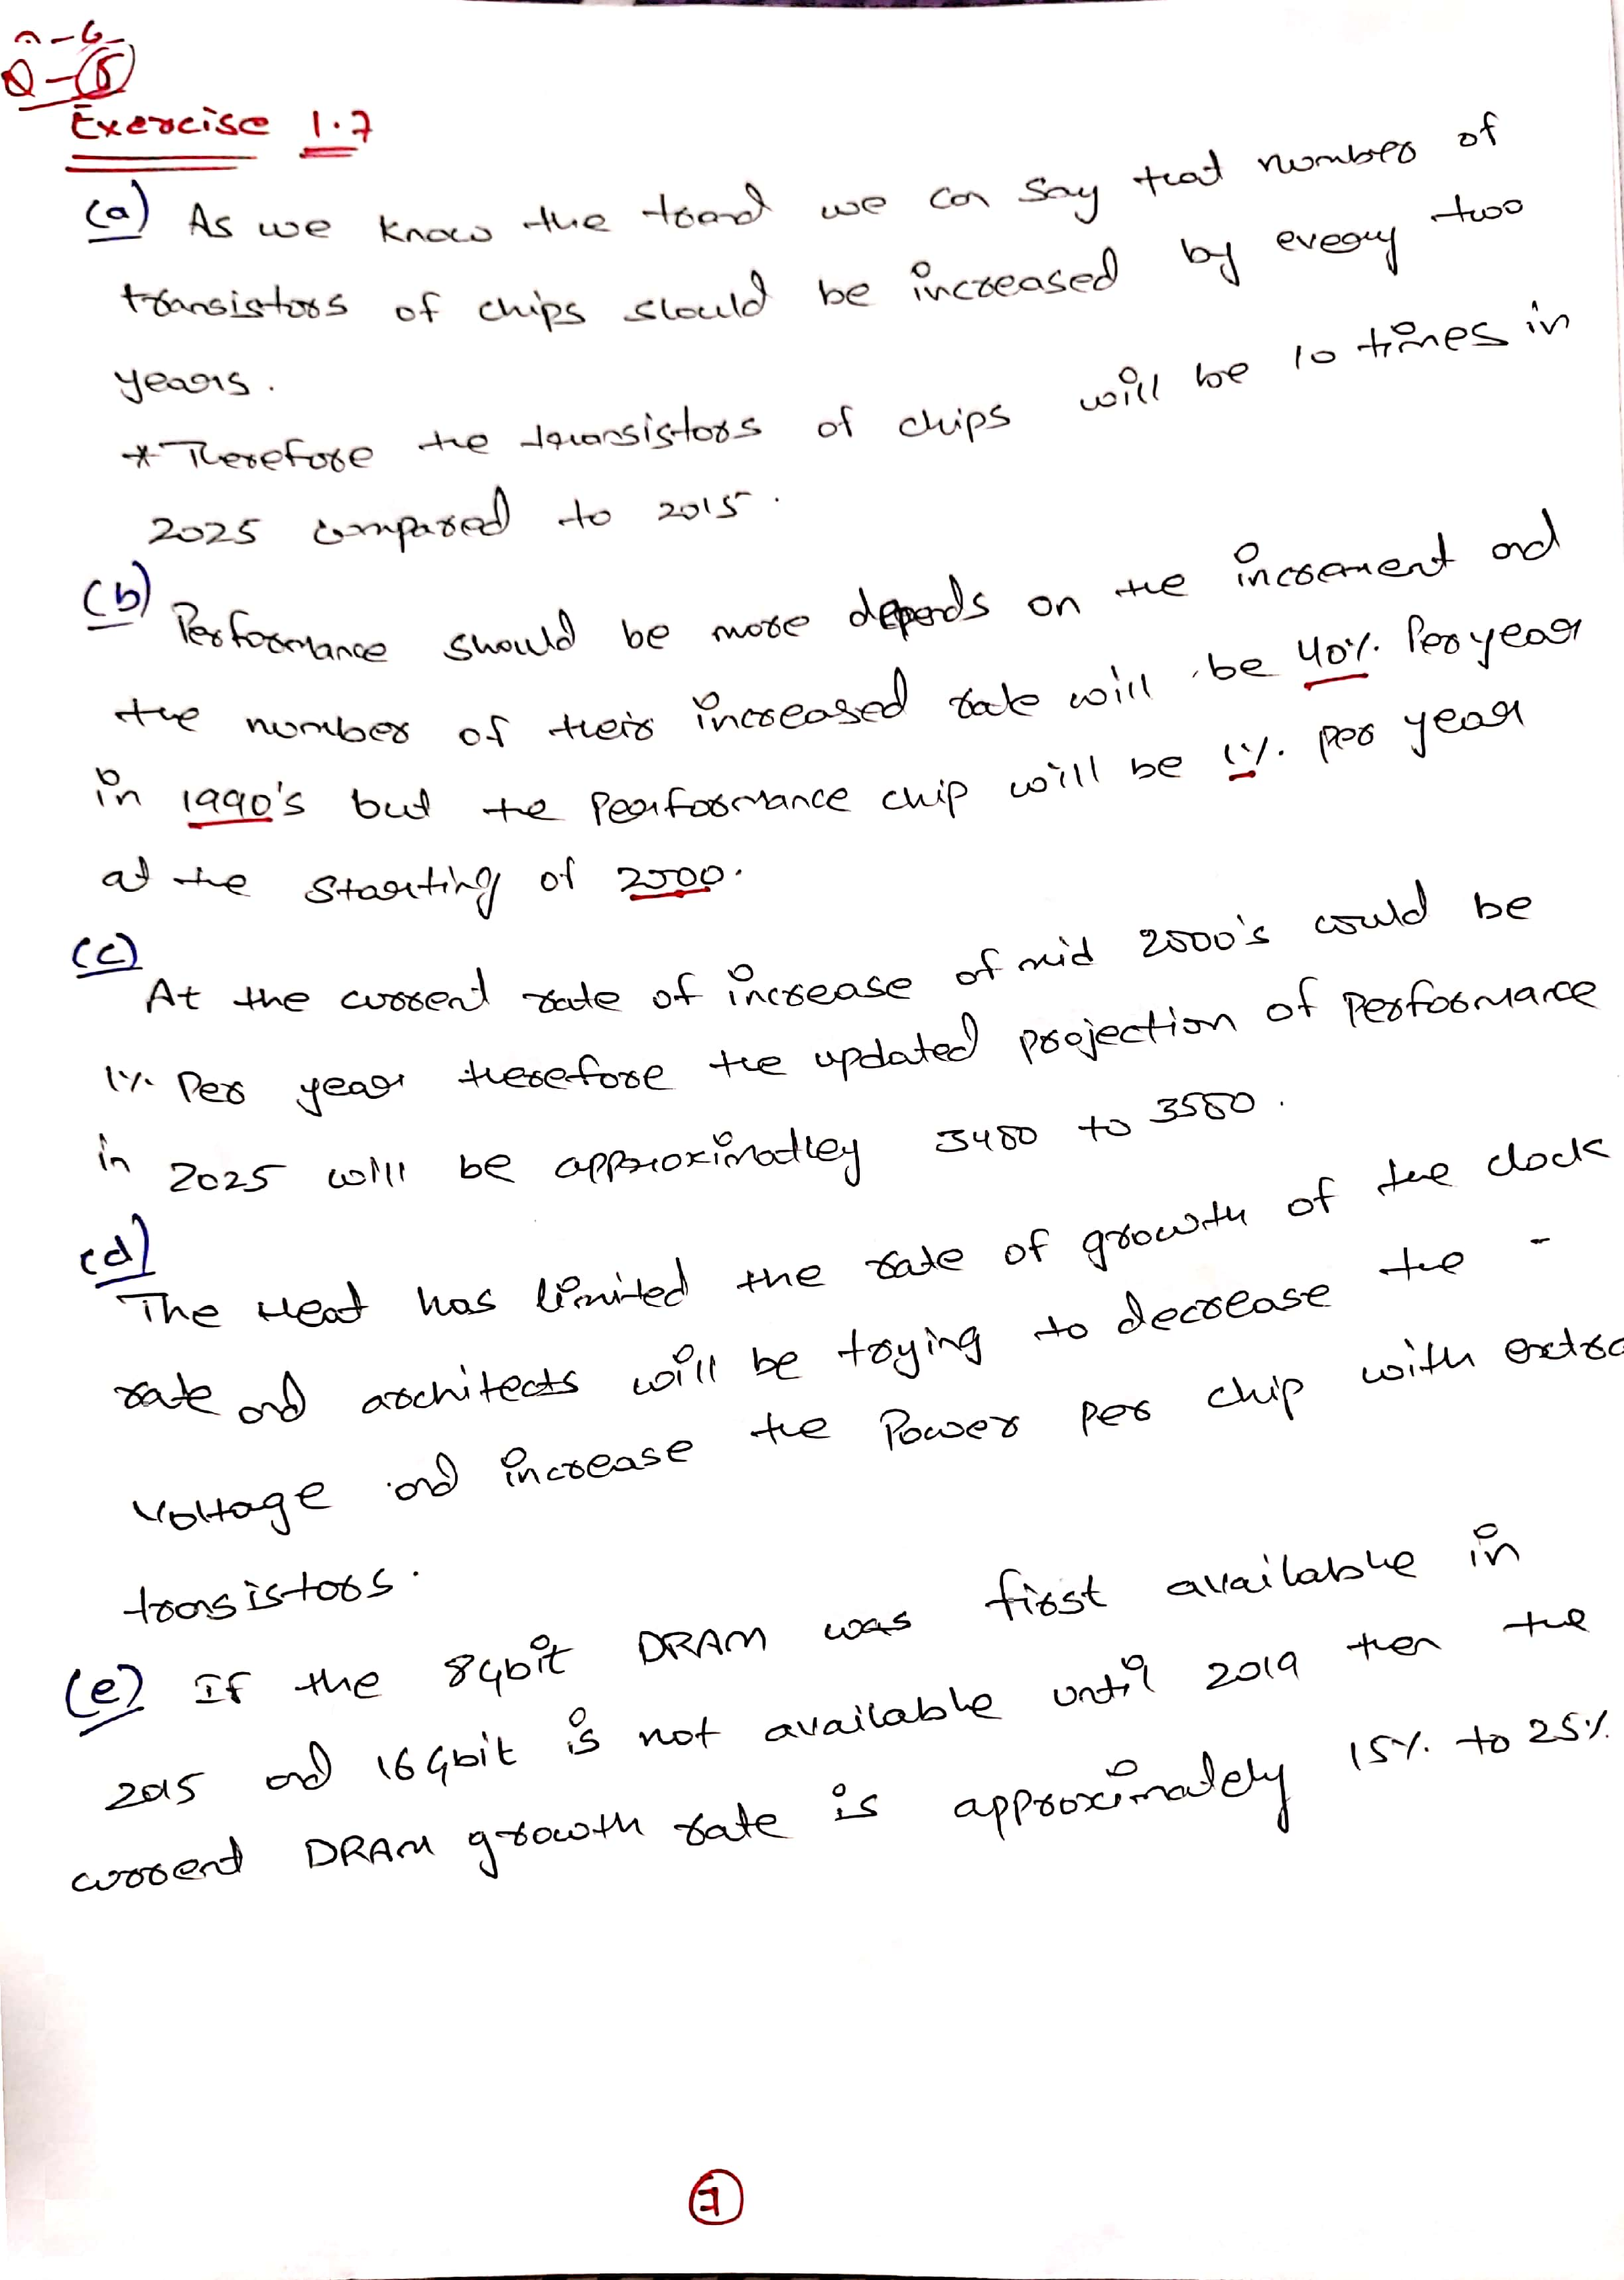 Q-5
Exercise 1.7
(a) As we know the trand we can say that number of
transistors of chips should be increased by every two
years.
* Therefore the transistors of chips will be 10 times in
2025 compared to 2015.
(b) Performance should be more depends on the increment and
the number of their increased rate will be 40%. Per year
in 1990's but the performance chip will be 1%. per year
at the starting of 2000.
(c)
At the current rate of increase of mid 2000's could be
1%. Per year therefore the updated projection of Performance
in 2025 will be approximatley 3400 to 3500.
(d)
The Heat has limited the rate of growth of the clock
rate and architects will be trying to decrease the -
voltage and increase the Power per chip with extra
transistors.
(e) If the 8Gbit DRAM was first available in
2015 and 16Gbit is not available until 2019 then the
current DRAM growth rate is approximately 15%. to 25%.
7